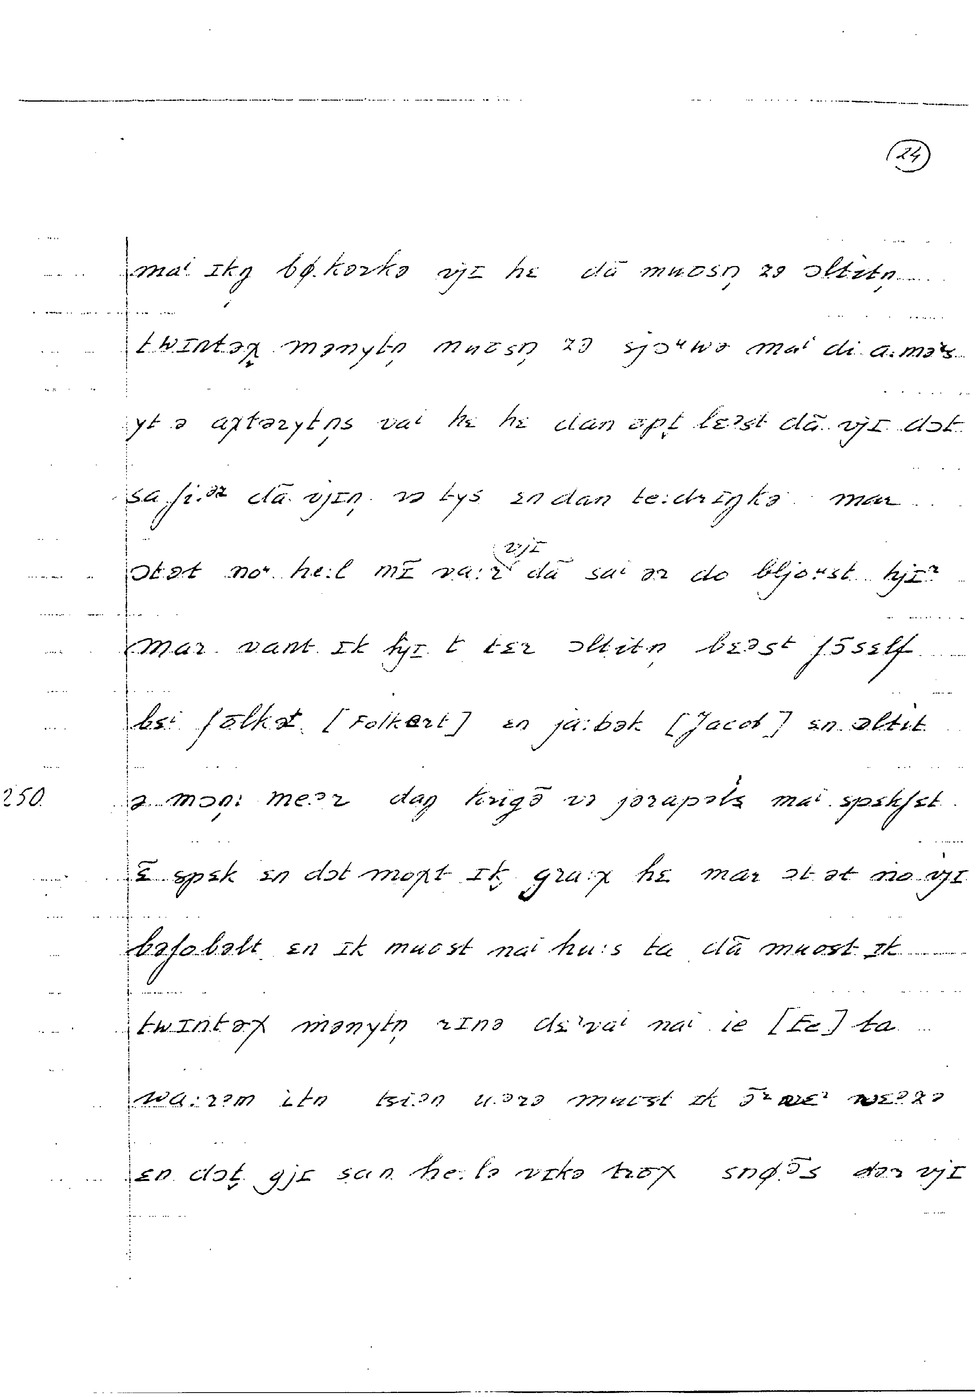 24
maⁱ ɪkŋ bø.kərkə vjɪ hɛ dā muɔsṇ zə ɔltitṇ
twɪntəχ mənytṇ muɔsṇ zə sjɔuwə maⁱ di a.mərs
yt ə aχtərytṇs vaⁱ hɛ hɛ dan əpṭ lɛəst dā vjɪ dɔt
sa fi.ər dā vjɪṇ və tys ɛn dan te:drɪŋkə mar
ɔtət noʳ he:l mī va:r vjɪ dā saⁱ ər do bljoʳst hjɪʳ
mar vant ɪk hjɪ t tɛr ɔltitṇ bɛəst fōsɛlf
bɛⁱ fōlkət [Folkert] ɛn ja:bək [Jacob] ɛn əltit
250 ə mɔṇ: me:ər daŋ krigə̄ və jərapəls maⁱ spɛkfɛt
ɛ̄ spɛk ɛn dɔt moχt ɪk gra:χ hɛ mar ɔt ət no vjɪ
bəfobəlt ɛn ɪk muost naⁱ hu:s ta dā muost ɪk
twɪntəχ mənytṇ rɪnə dɛʳvaⁱ naⁱ ie [Ee] ta
wa:rəm itṇ tsiən uərə muost ɪk ə̄ʳ wɛʳ wɛəzə
ɛn dɔṭ gjɪ san he:lə vɪkə troχ snø̄s dər vjɪ